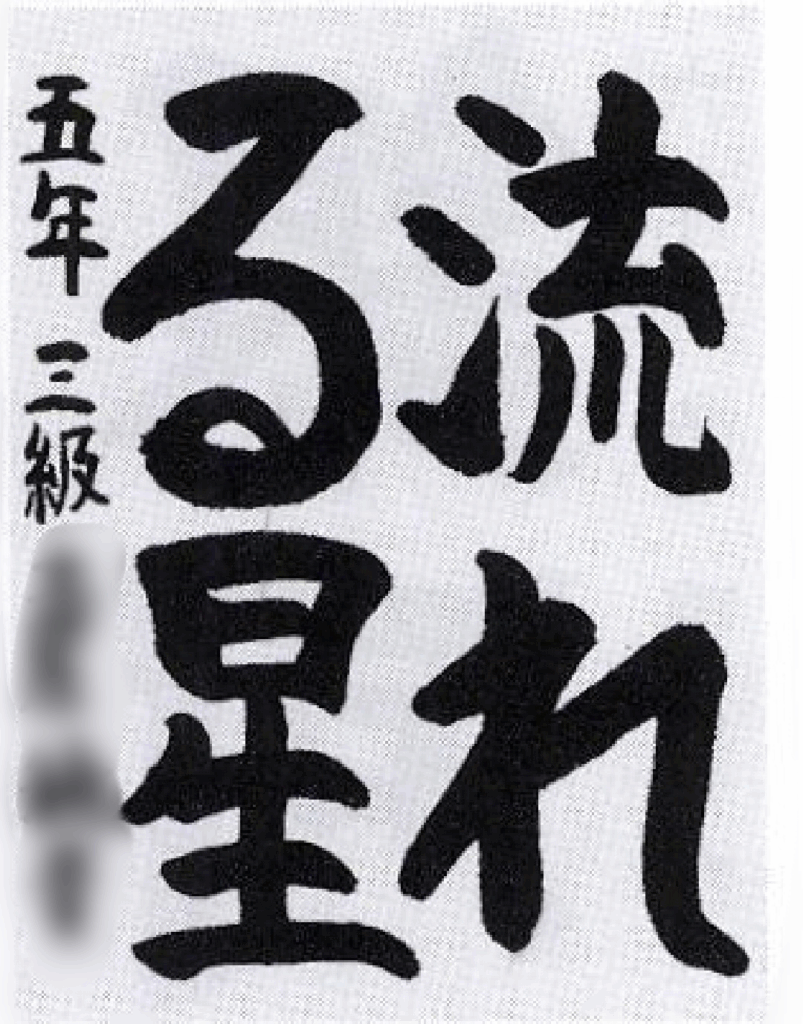 流れ
る星
五年 三級